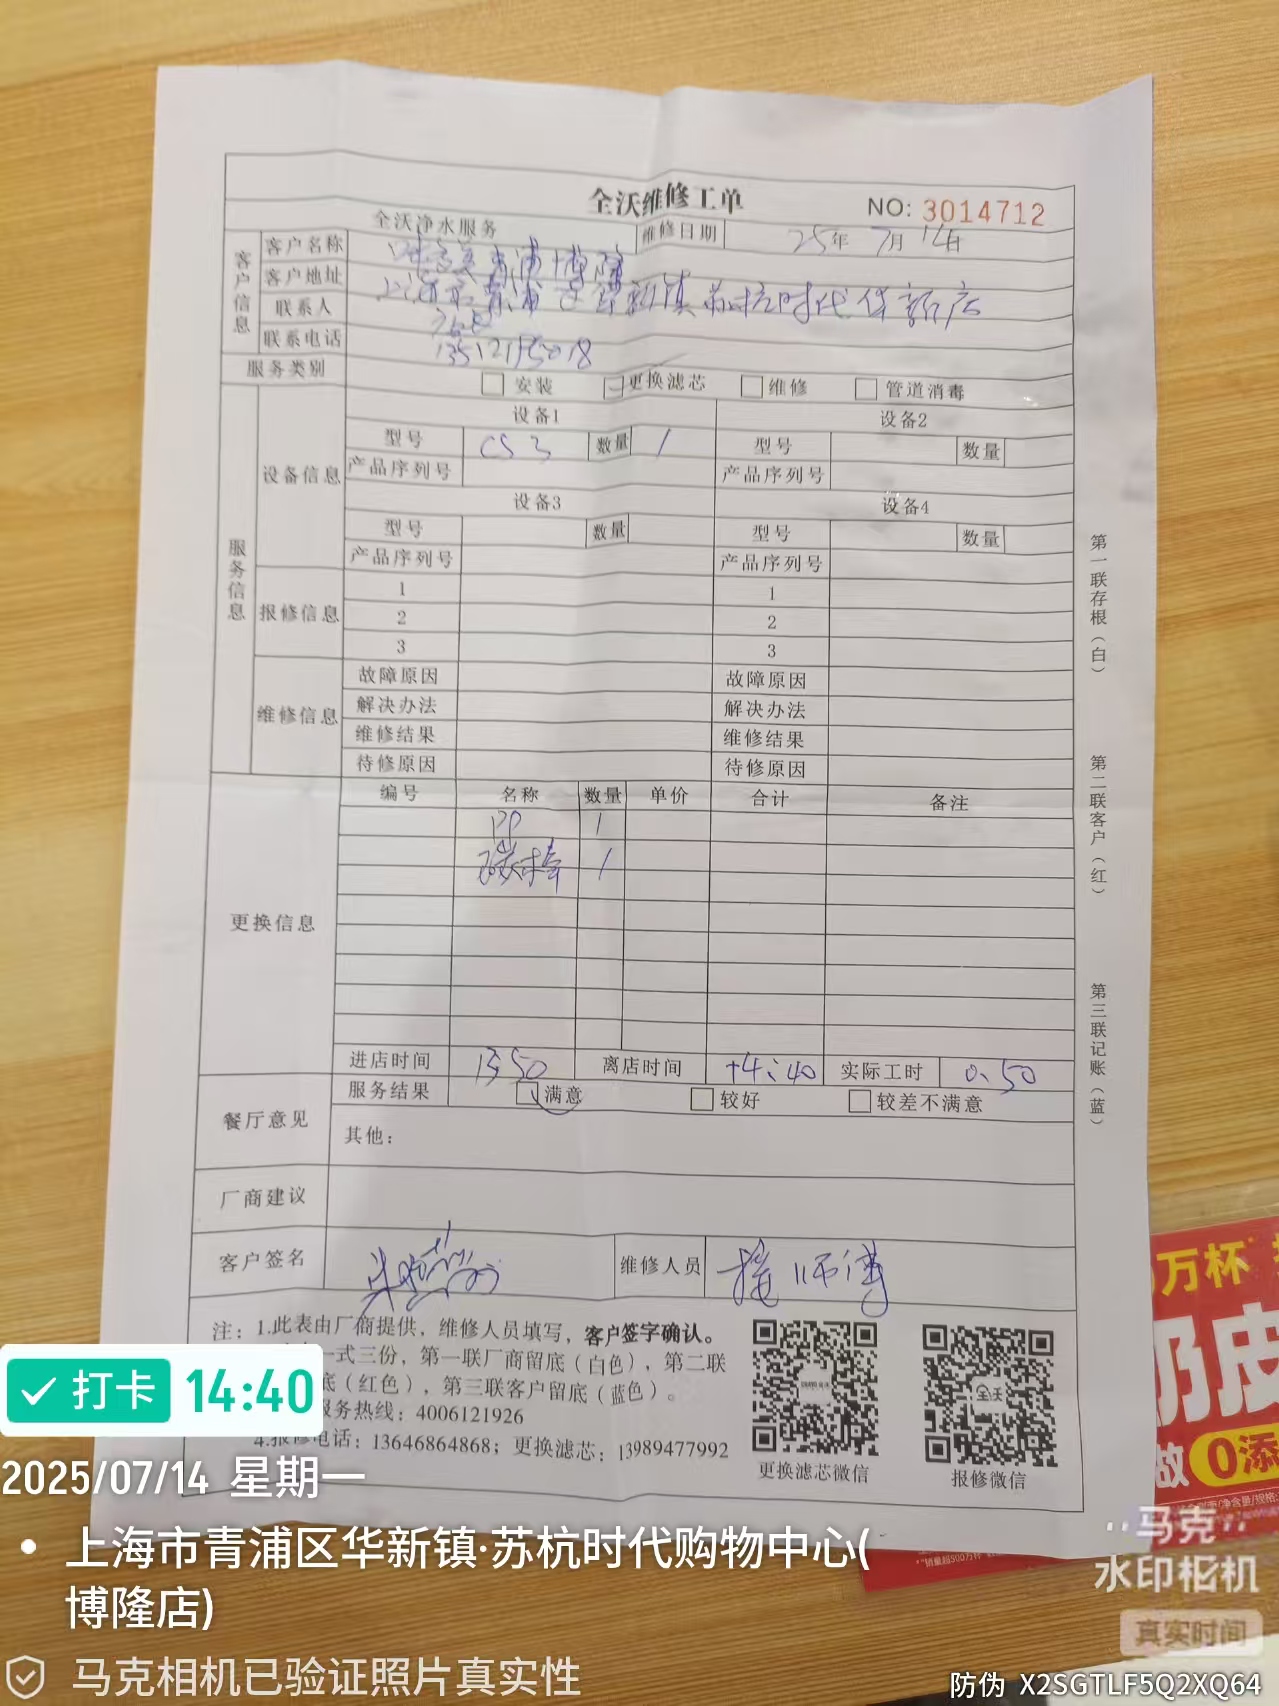 全沃维修工单
NO: 3014712
全沃净水服务 维修日期 25年 7月 14日
客户信息
客户名称 青浦博隆
客户地址 上海市青浦区华新镇苏杭时代华新店
联系人
联系电话
服务类别 安装 更换滤芯 维修 管道消毒
服务信息
设备信息
设备1 设备2
型号 CS3 数量 1 型号 数量
产品序列号 产品序列号
设备3 设备4
型号 数量 型号 数量
产品序列号 产品序列号
报修信息
1 1
2 2
3 3
维修信息
故障原因 故障原因
解决办法 解决办法
维修结果 维修结果
待修原因 待修原因
更换信息
编号 名称 数量 单价 合计 备注
PP 1
碳棒 1
进店时间 13:50 离店时间 14:40 实际工时 0.50
餐厅意见
服务结果 满意 较好 较差不满意
其他：
厂商建议
客户签名 维修人员 师傅
注：1.此表由厂商提供，维修人员填写，客户签字确认。
一式三份，第一联厂商留底（白色），第二联
底（红色），第三联客户留底（蓝色）。
服务热线：4006121926
4.报修电话：13646864868；更换滤芯：13989477992
更换滤芯微信 报修微信
第一联存根（白）
第二联客户（红）
第三联记账（蓝）
万杯
奶皮
做 0添
打卡 14:40
2025/07/14 星期一
上海市青浦区华新镇·苏杭时代购物中心(
博隆店)
马克相机已验证照片真实性
马克
水印相机
真实时间
防伪 X2SGTLF5Q2XQ64